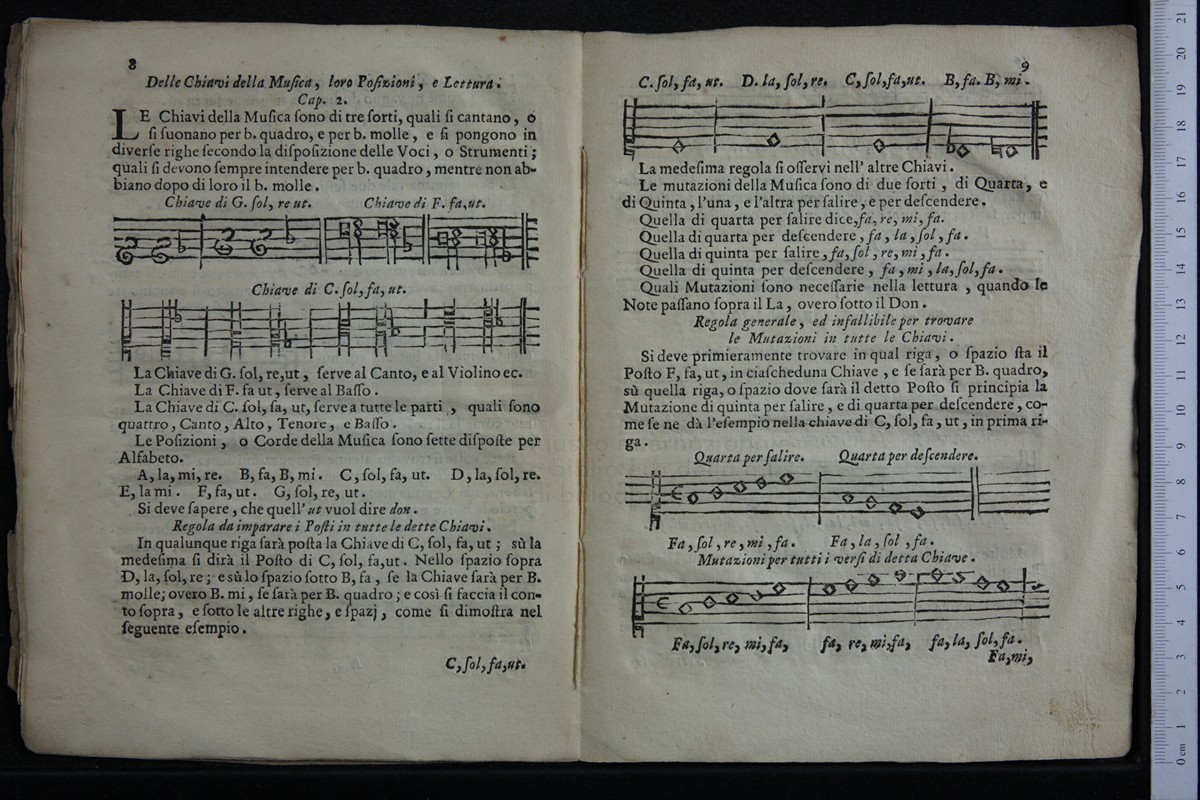 8
Delle Chiavi della Muſica, loro Poſizioni, e Lettura.
Cap. 2.
LE Chiavi della Muſica ſono di tre ſorti, quali ſi cantano, o
ſi ſuonano per b. quadro, e per b. molle, e ſi pongono in
diverſe righe ſecondo la diſpoſizione delle Voci, o Strumenti;
quali ſi devono ſempre intendere per b. quadro, mentre non ab-
biano dopo di loro il b. molle.
Chiave di G. ſol, re ut. Chiave di F. fa, ut.
Chiave di C. ſol, fa, ut.
La Chiave di G. ſol, re, ut, ſerve al Canto, e al Violino ec.
La Chiave di F. fa ut, ſerve al Baſſo.
La Chiave di C. ſol, fa, ut, ſerve a tutte le parti, quali ſono
quattro, Canto, Alto, Tenore, e Baſſo.
Le Poſizioni, o Corde della Muſica ſono ſette diſpoſte per
Alfabeto.
A, la, mi, re. B, fa, B, mi. C, ſol, fa, ut. D, la, ſol, re.
E, la mi. F, fa, ut. G, ſol, re, ut.
Si deve ſapere, che quell' ut vuol dire don.
Regola da imparare i Poſti in tutte le dette Chiavi.
In qualunque riga ſarà poſta la Chiave di C, ſol, fa, ut; sù la
medeſima ſi dirà il Poſto di C, ſol, fa, ut. Nello ſpazio ſopra
D, la, ſol, re; e sù lo ſpazio ſotto B, fa, ſe la Chiave ſarà per B.
molle; overo B. mi, ſe ſarà per B. quadro; e così ſi faccia il con-
to ſopra, e ſotto le altre righe, e ſpazj, come ſi dimoſtra nel
ſeguente eſempio.
C, ſol, fa, ut.
9
C. ſol, fa, ut. D. la, ſol, re. C, ſol, fa, ut. B, fa. B, mi.
La medeſima regola ſi oſſervi nell' altre Chiavi.
Le mutazioni della Muſica ſono di due ſorti, di Quarta, e
di Quinta, l'una, e l'altra per ſalire, e per deſcendere.
Quella di quarta per ſalire dice, fa, re, mi, fa.
Quella di quarta per deſcendere, fa, la, ſol, fa.
Quella di quinta per ſalire, fa, ſol, re, mi, fa.
Quella di quinta per deſcendere, fa, mi, la, ſol, fa.
Quali Mutazioni ſono neceſſarie nella lettura, quando le
Note paſſano ſopra il La, overo ſotto il Don.
Regola generale, ed infallibile per trovare
le Mutazioni in tutte le Chiavi.
Si deve primieramente trovare in qual riga, o ſpazio ſta il
Poſto F, fa, ut, in ciaſcheduna Chiave, e ſe ſarà per B. quadro,
sù quella riga, o ſpazio dove ſarà il detto Poſto ſi principia la
Mutazione di quinta per ſalire, e di quarta per deſcendere, co-
me ſe ne dà l'eſempio nella chiave di C, ſol, fa, ut, in prima ri-
ga.
Quarta per ſalire. Quarta per deſcendere.
Fa, ſol, re, mi, fa. Fa, la, ſol, fa.
Mutazioni per tutti i verſi di detta Chiave.
Fa, ſol, re, mi, fa, fa, re, mi, fa, fa, la, ſol, fa.
Fa, mi,
0 cm 1 2 3 4 5 6 7 8 9 10 11 12 13 14 15 16 17 18 19 20 21